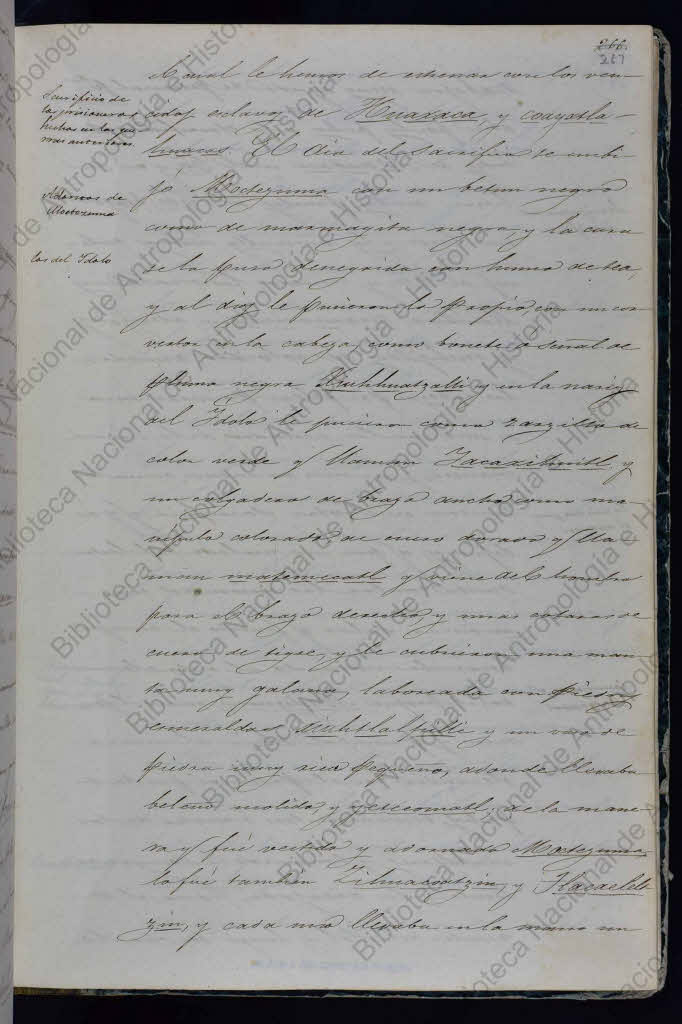 266
267
Sacrificio de
los prisioneros
hechos en las gue
rras anteriores
Adornos de
Moctezuma
los del Ydolo
le hemos de estrenar con los ven-
cidos esclavos de Huaxaca, y coayxtla-
huacas. El dia del sacrificio se embi-
jó Moctezuma con un betun negro
como de marmagita negra, y la cara
se la puso denegrida con humo de tea,
y al dios le pusieron lo propio, con un co
bertor en la cabeza, como bonete o señal de
pluma negra Xiuhhuatzalli y en la nariz
del Ydolo le pusieron como zarzillo de
color verde q/ llaman Yacaxihuitl y
un colgadero de brazo ancho como ma
nipulo colorado de cuero dorado q/ lla
man matemecatl q/ viene del hombro
para el brazo derecho, y unas cotaras de
cuero de tigre, y le cubrieron una man
ta muy galana, laboreada con
esmeraldas xiuhtlalpilli y un vaso de
piedra muy rica pequeño, adonde llevaba
beleño molido, y yetecomatl; de la mane
ra q/ fué vestido y adornado Moctezuma,
lo fué tambien Zihuacoatzin, y Tlacaelelt
zin, y cada uno llevaba en la mano un
Biblioteca Nacional de Antropología e Historia